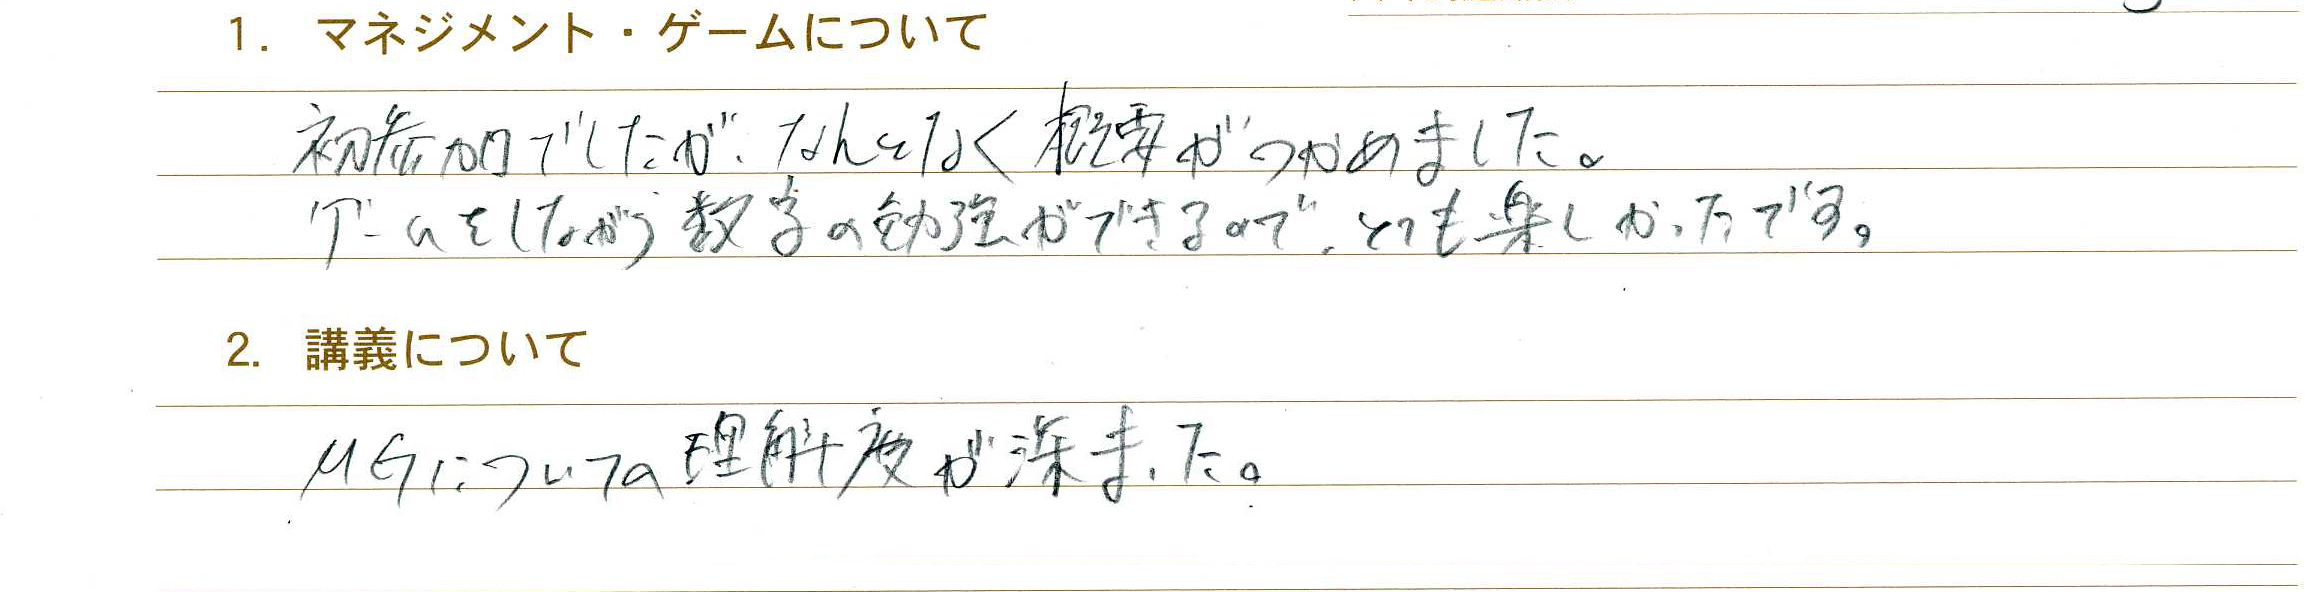 1. マネジメント・ゲームについて
初参加でしたが、なんとなく概要がつかめました。
ゲームをしながら数字の勉強ができるので、とても楽しかったです。
2. 講義について
MGについての理解度が深まった。